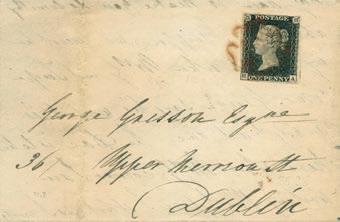 POSTAGE
ONE PENNY
George Gresson Esqre
36 Upper Merrion St
Dublin